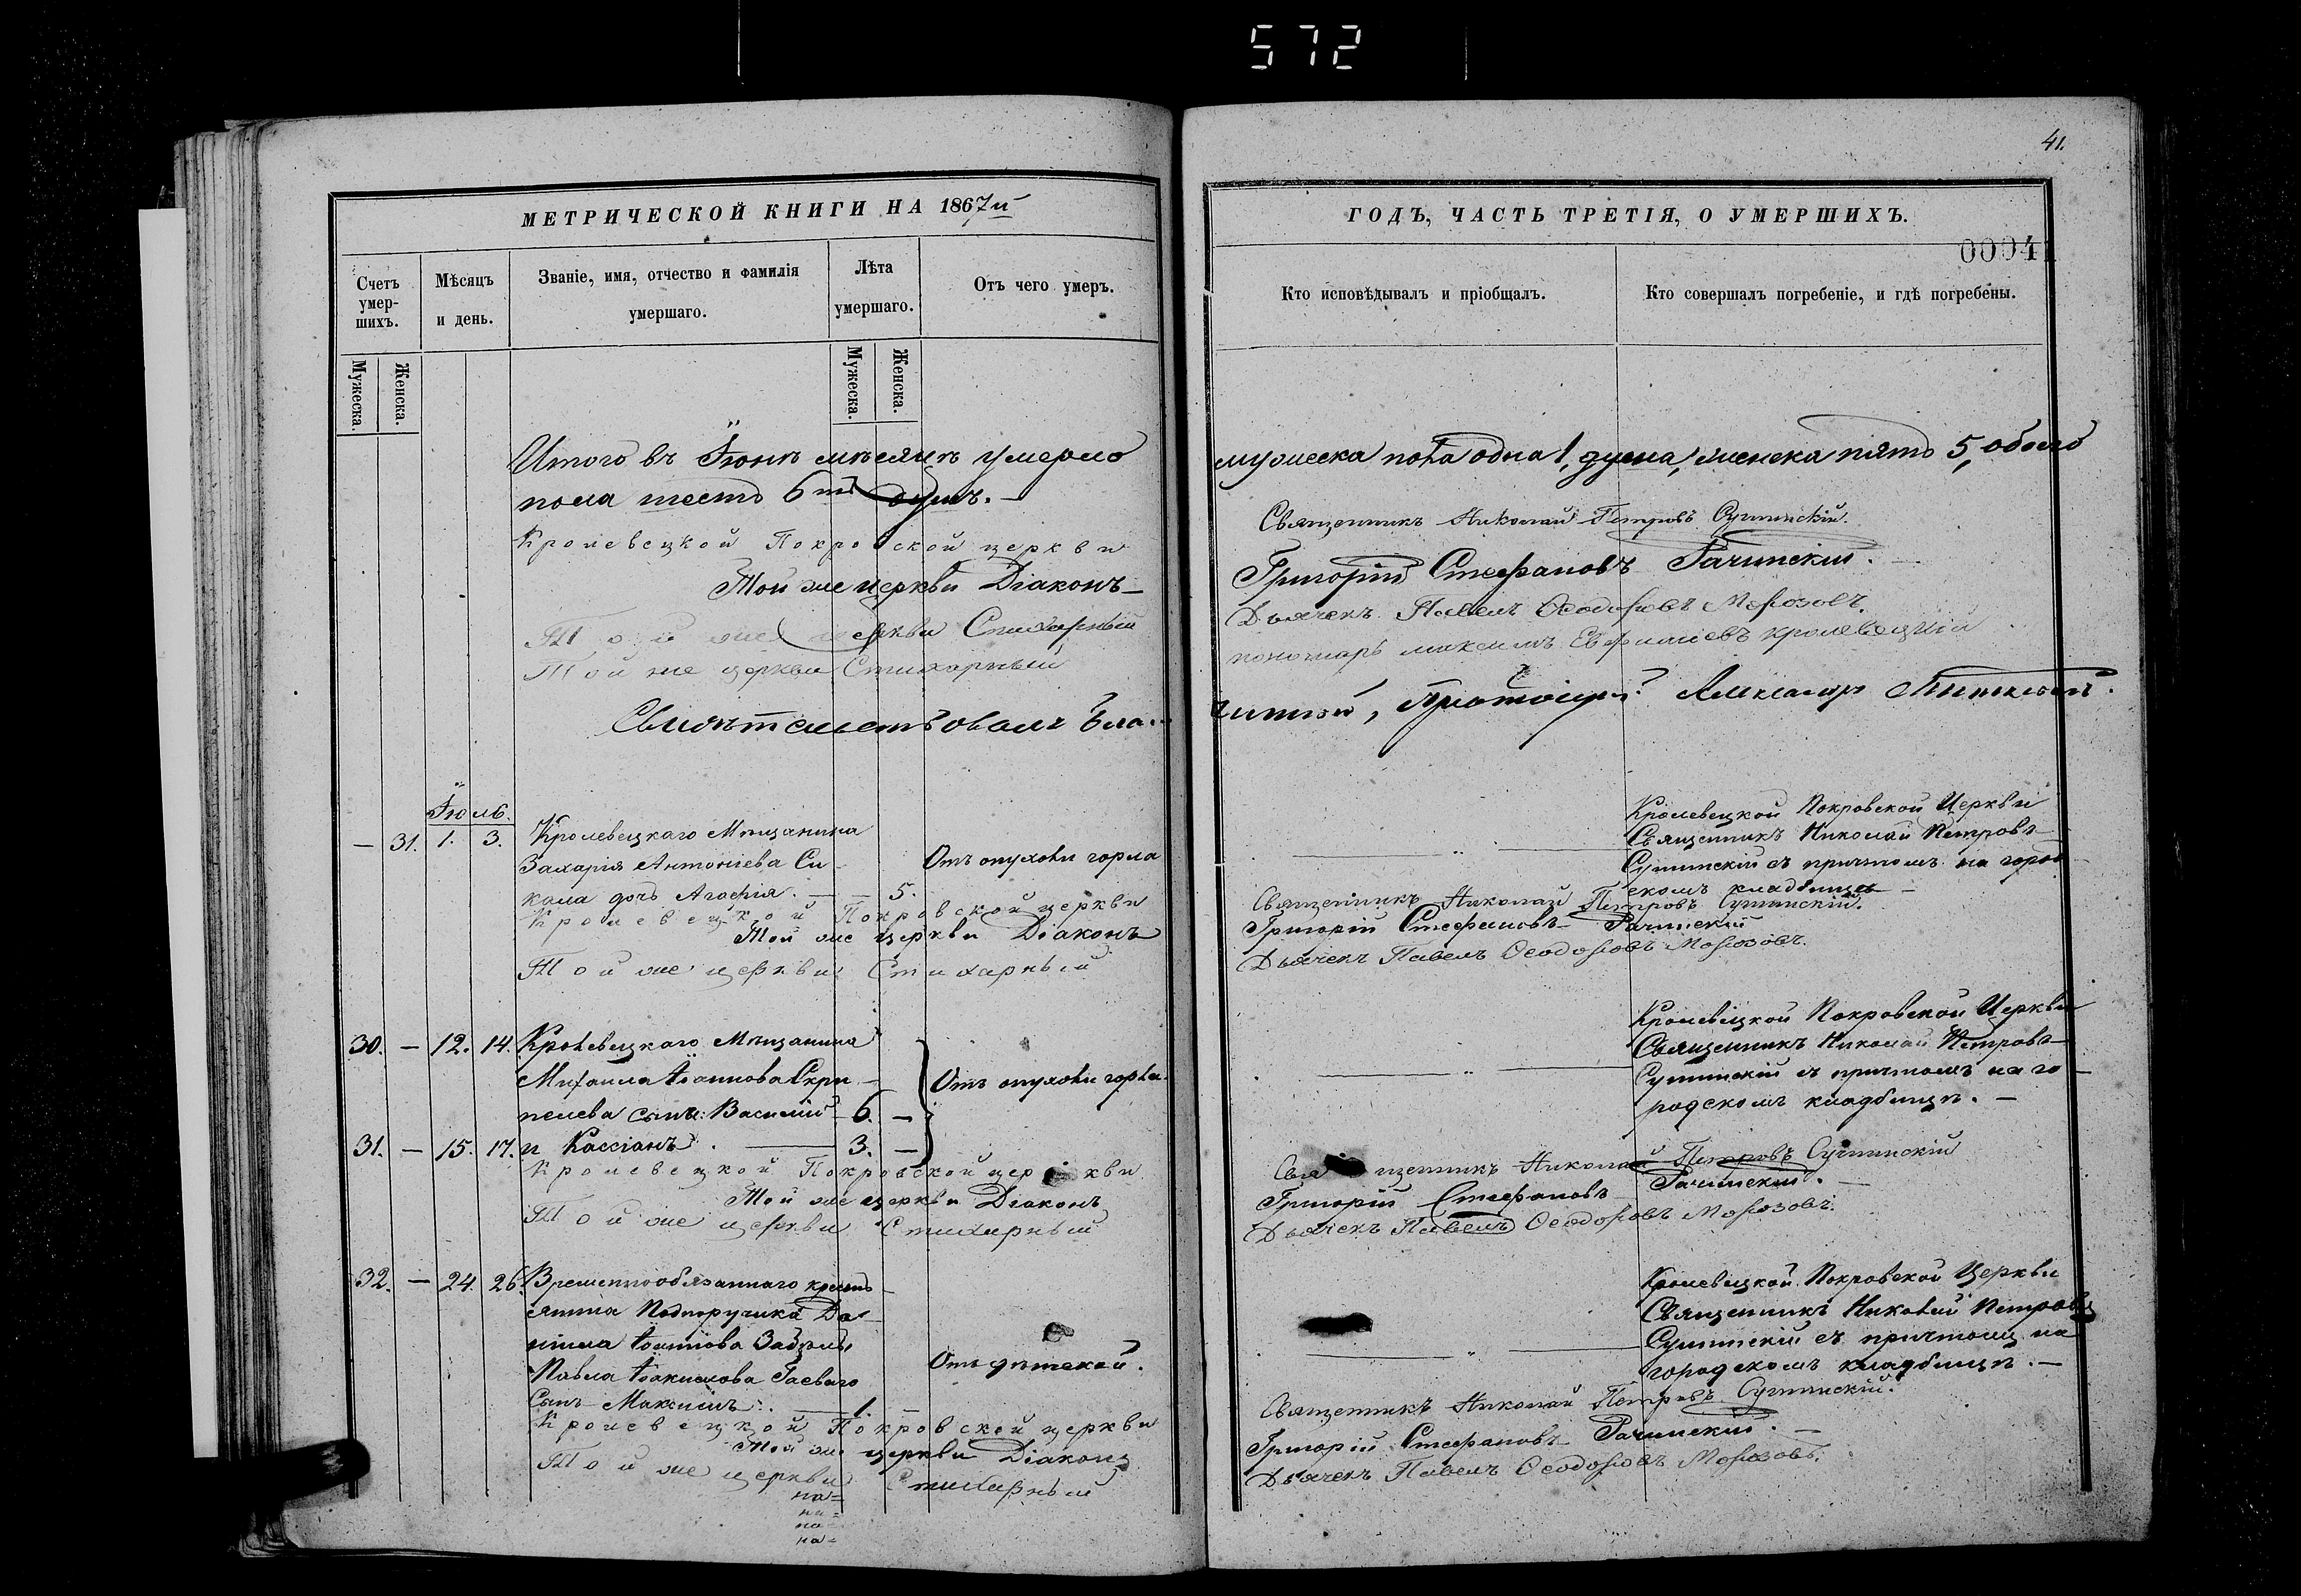 572
41.
МЕТРИЧЕСКОЙ КНИГИ НА 1867й
Счетъ умер-шихъ.
Мѣсяцъ и день.
Званіе, имя, отчество и фамилія умершаго.
Лѣта умершаго.
Отъ чего умеръ.
Мужеска.
Женска.
Мужеска.
Женска.
Итого въ Іюнѣ мѣсяцѣ умерло
пола шесть 6ть душъ. —
Кролевецкой Покровской церкви
Той же церкви Діаконъ —
Той же церкви Стихарный
Той же церкви Стихарный
Свидѣтельствовалъ Бла-
Іюль.
— 31. 1. 3. Кролевецкаго Мѣщанина
Захарія Антоніева Си-
кала дочь Агафія. — — 5. Отъ опухоли горла
Кролевецкой Покровской церкви
Той же церкви Діаконъ
Той же церкви Стихарный
30. — 12. 14. Кролевецкаго Мѣщанина
Михаила Іоаннова Скри-
пелева сынъ: Василій 6. — Отъ опухоли горла.
31. — 15. 17. и Кассіанъ. — 3. —
Кролевецкой Покровской церкви
Той же церкви Діаконъ
Той же церкви Стихарный
32. — 24. 26. Временнообязаннаго кресть-
янина Подпоручика Да-
ніила Іоаннова
Павла Гаеваго
Сынъ Максимъ. — 1. Отъ дѣтской.
Кролевецкой Покровской церкви
Той же церкви Діаконъ
Той же церкви Стихарный
на=
на=
на=
на=
ГОДЪ, ЧАСТЬ ТРЕТІЯ, О УМЕРШИХЪ.
00041
Кто исповѣдывалъ и пріобщалъ.
Кто совершалъ погребеніе, и гдѣ погребены.
мужеска пола одна 1, душа, женска пять 5, обоего
Священникъ Николай Петровъ
Григорій Стефановъ Рачинскій.
Дьячекъ Павелъ Ѳеодоровъ Морозовъ.
пономарь Максимъ Евфиміевъ Кролевецкій
чинный, Протоіерей Александръ
Кролевецкой Покровской Церкви
Священникъ Николай Петровъ
съ причтомъ на город-
скомъ кладбищѣ —
Священникъ Николай Петровъ
Григорій Стефановъ Рачинскій
Дьячекъ Павелъ Ѳеодоровъ Морозовъ.
Кролевецкой Покровской Церкви
Священникъ Николай Петровъ
съ причтомъ на го-
родскомъ кладбищѣ. —
Священникъ Николай Петровъ
Григорій Стефановъ Рачинскій. —
Дьячекъ Павелъ Ѳеодоровъ Морозовъ.
Кролевецкой Покровской Церкви
Священникъ Николай Петровъ
съ причтомъ на
городскомъ кладбищѣ. —
Священникъ Николай Петровъ
Григорій Стефановъ Рачинскій. —
Дьячекъ Павелъ Ѳеодоровъ Морозовъ.